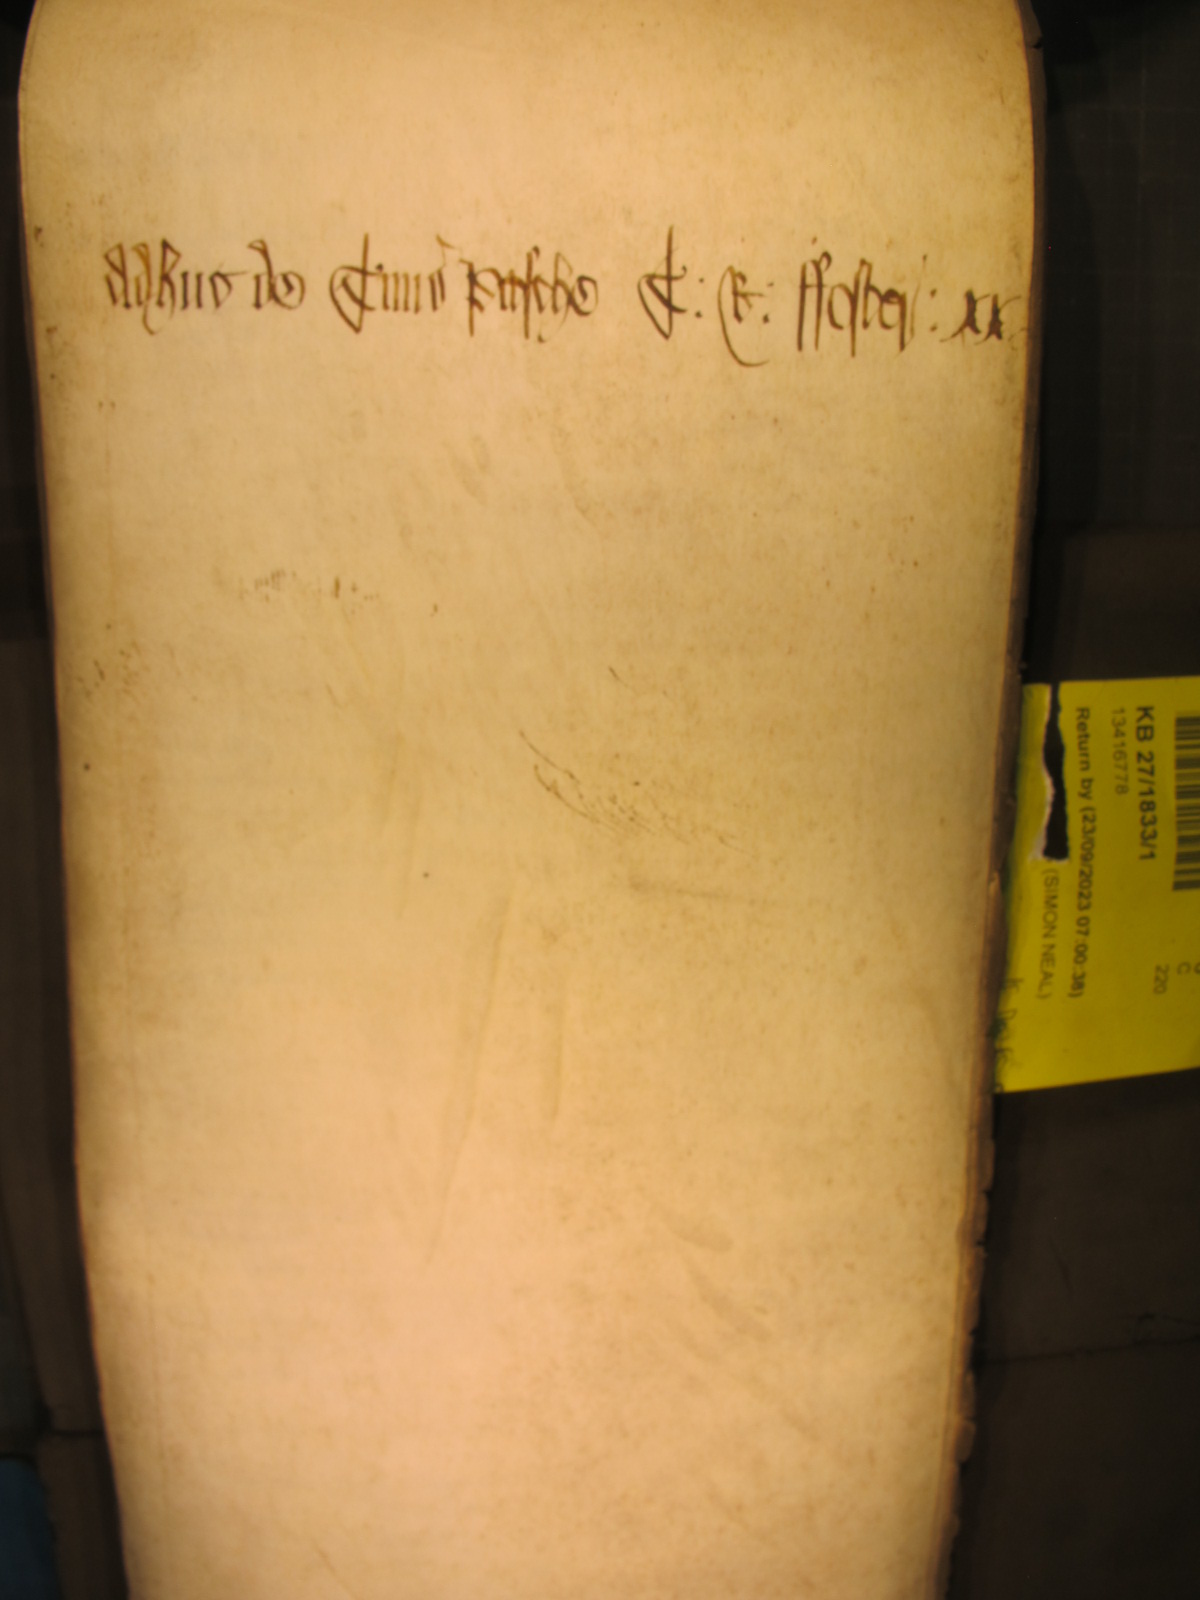 Adhuc de Termino Pasche T: R: ffoster: xx
KB 27/1833/1
13416778
Return by (23/09/2023 07:00:38)
(SIMON NEAL)
C
220